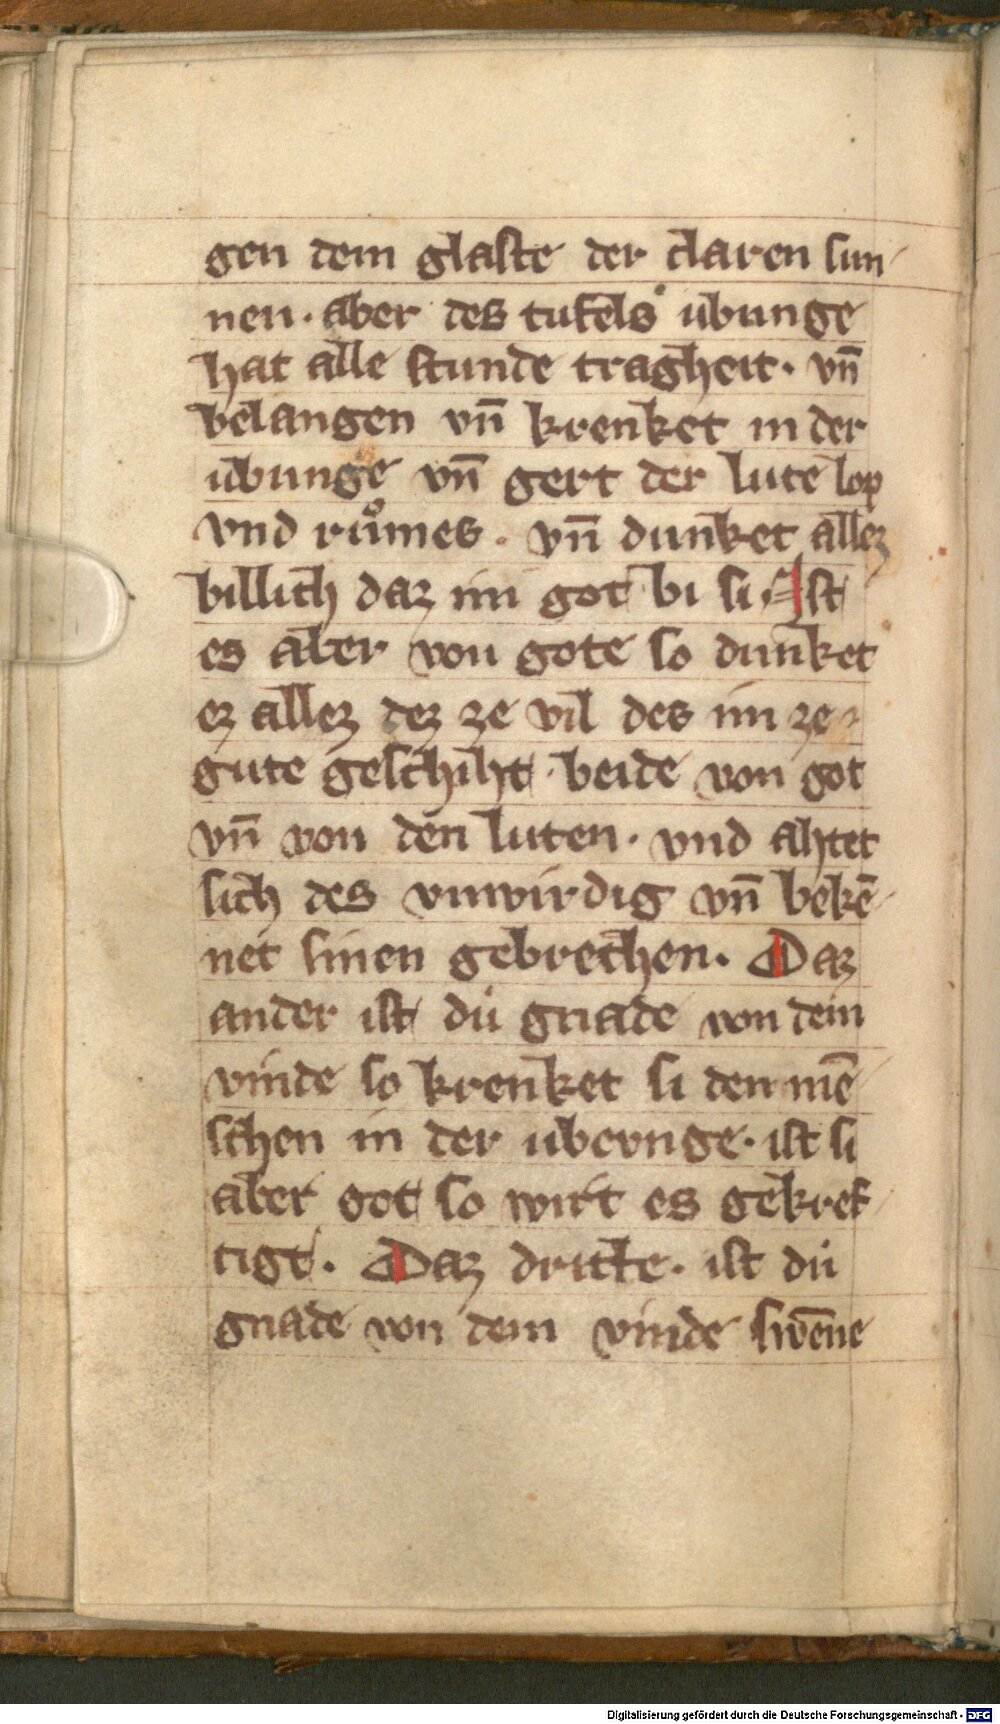 gen dem glaste der claren sun
nen. aber des tufels übunge
hat alle stunde tragheit. vn̄
belangen vn̄ krenket in der
übunge vn̄ gert der lute lop
vnd růmes. vn̄ dunket allez
billich daz im got bi si. Ist
es aber von gote so dunket
ez allez dez ze vil des im ze
gute geschiht. beide von got
vn̄ von den luten. vnd ahtet
sich des vnwirdig vn̄ bekē
net sinen gebrechen. Daz
ander ist dú gnade von dem
vinde so krenket si den mē
schen in der ubevnge. ist si
aber got so wirt es gekref
tigt. Daz dritte. ist dú
gnade von dem vinde swēne
Digitalisierung gefördert durch die Deutsche Forschungsgemeinschaft - DFG